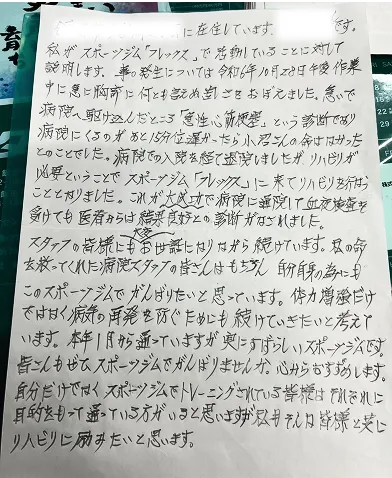 に在住しています。 です。
私がスポーツジム「フレックス」で活動していることに対して
説明します。事の発生については令和6年10月28日午後作業
中に急に胸苦に何とも詰め苦しさをおぼえました。急いで
病院へ駆け込んだところ「急性心筋梗塞」という診断であり
病院にくるのがあと15分位遅かったら小沼さんの命はなかった
とのことでした。病院での入院を経て退院しましたがリハビリが
必要ということでスポーツジム「フレックス」に来てリハビリを行なう
こととなりました。これが大成功で病院に通院して血液検査を
受けても医者からは結果良好との診断がなされました。
スタッフの皆様にも大変お世話になりながら続けています。私の命
を救ってくれた病院スタッフの皆さんはもちろん自分自身の為にも
このスポーツジムでがんばりたいと思っています。体力増強だけ
ではなく病気の再発を防ぐためにも続けていきたいと考えて
います。本年1月から通っていますが実にすばらしいスポーツジムです
皆さんもぜひスポーツジムでがんばりませんか、心からおすすめします。
自分だけではなくスポーツジムでトレーニングされている皆様はそれぞれに
目的をもって通っている方がいると思いますが私もそんな皆様と共に
リハビリに励みたいと思います。